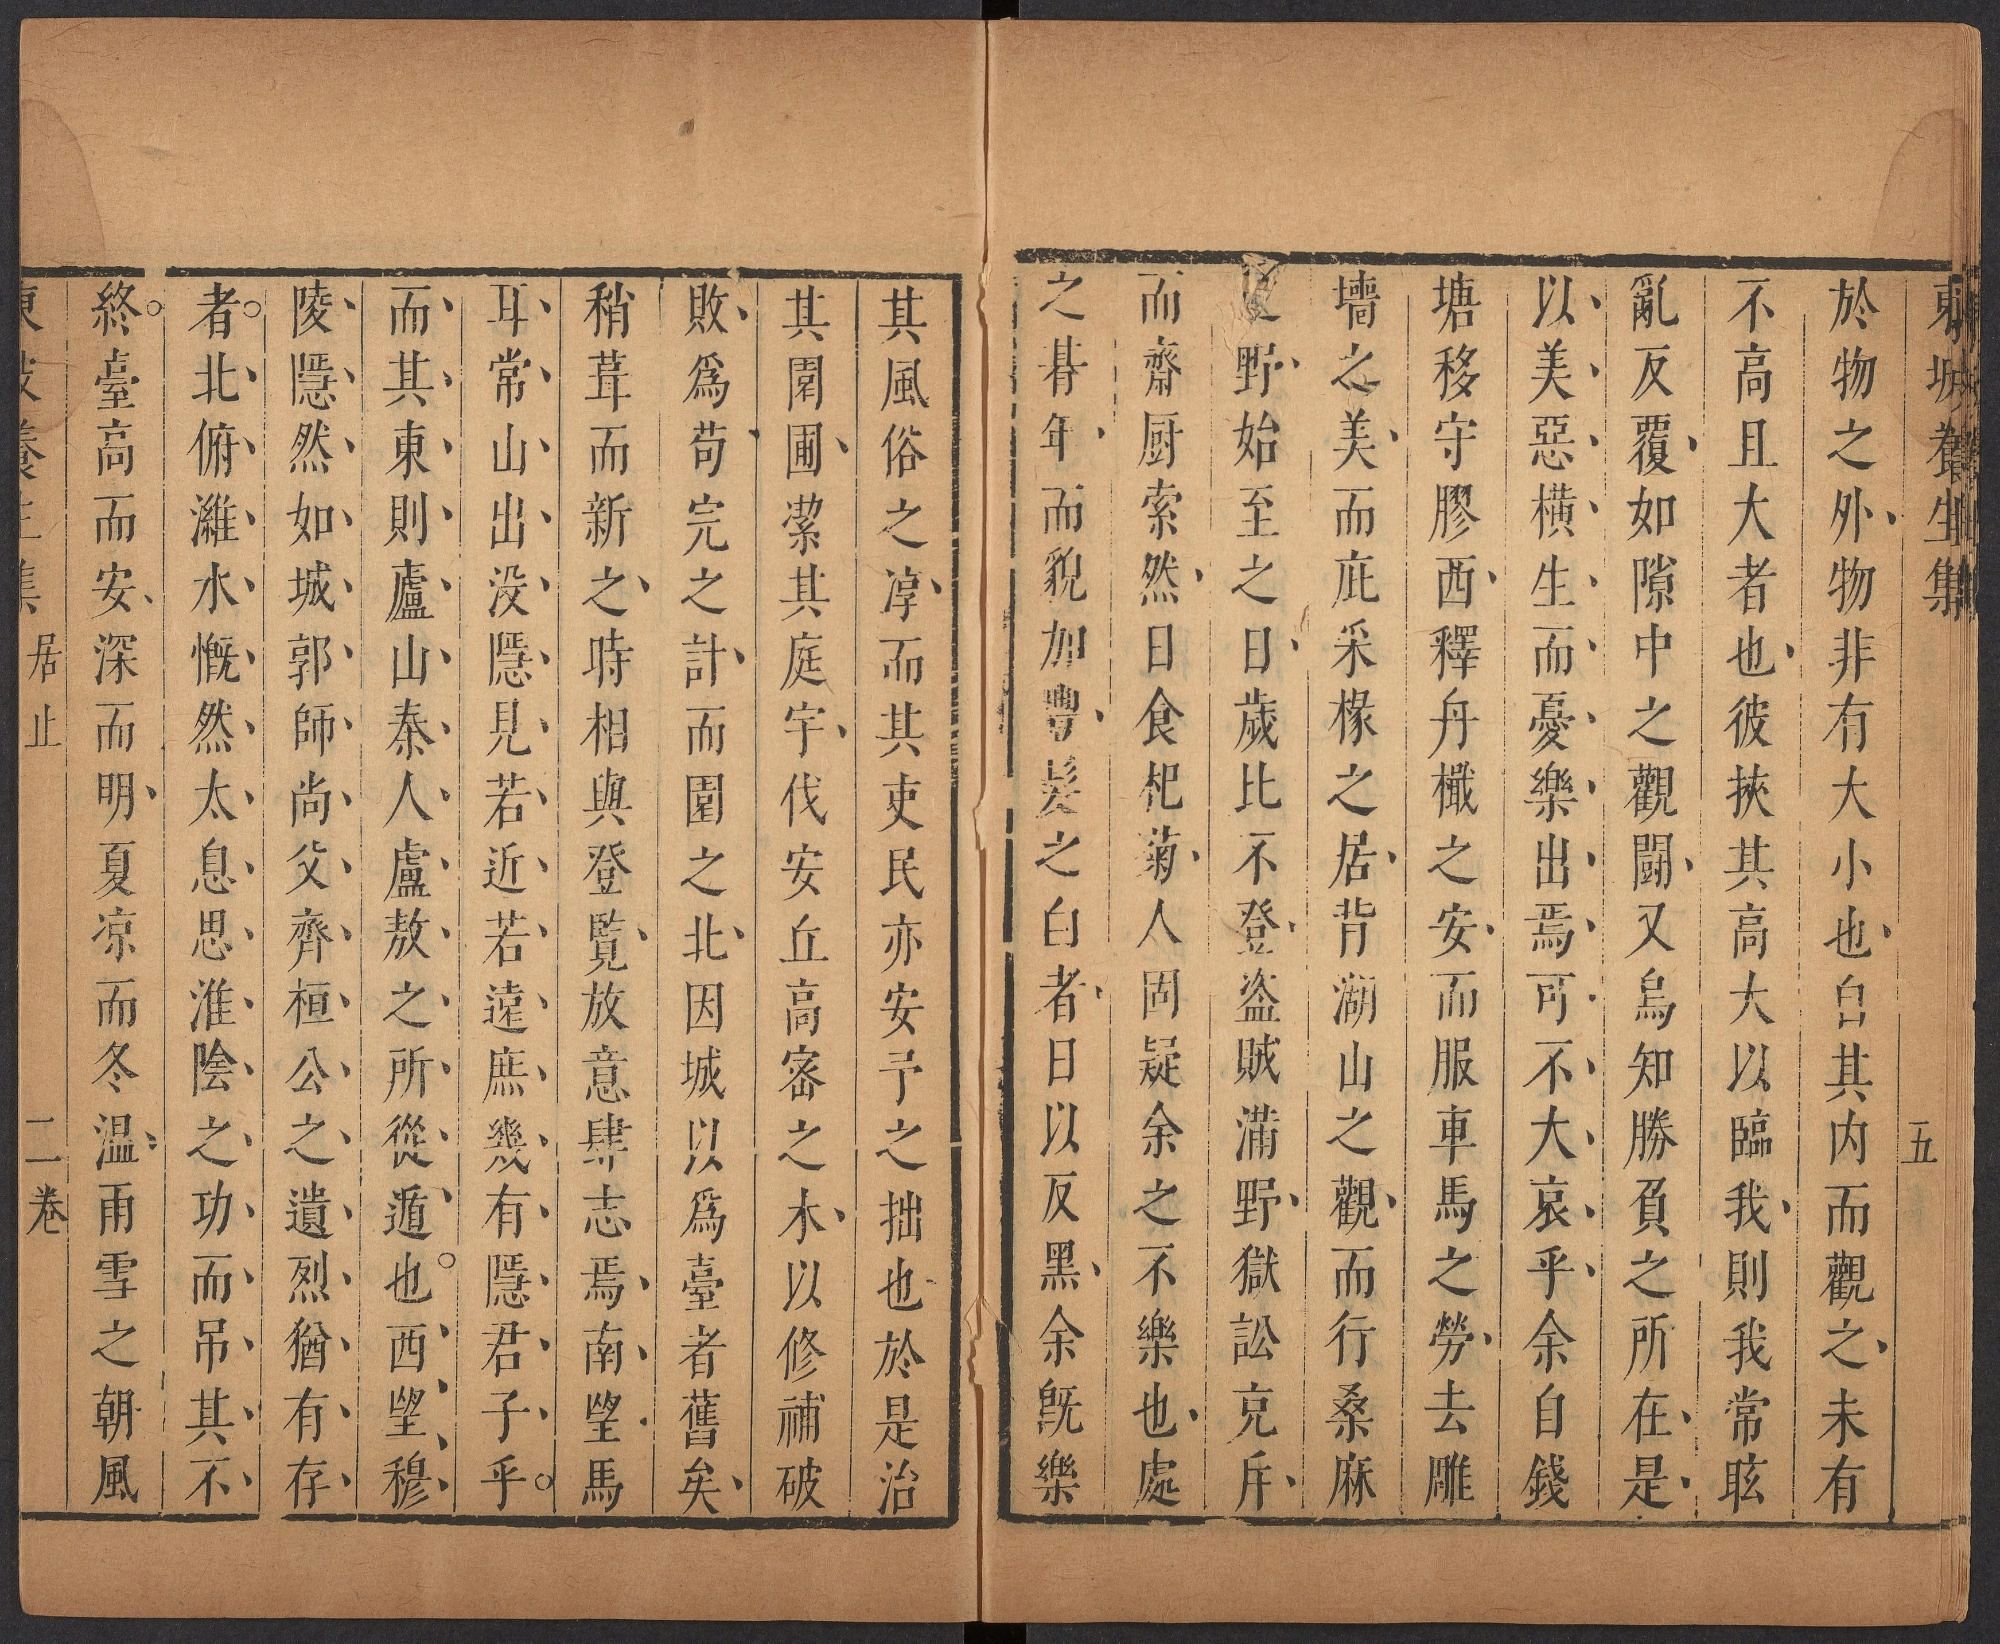 東坡養生集
五
於物之外物非有大小也自其内而觀之未有
不高且大者也彼挾其高大以臨我則我常眩
亂反覆如隙中之觀鬪又烏知勝負之所在是
以美惡橫生而憂樂出焉可不大哀乎余自錢
塘移守膠西釋舟檝之安而服車馬之勞去雕
墻之美而庇采椽之居背湖山之觀而行桑麻
之野始至之日歲比不登盜賊滿野獄訟充斥
而齋厨索然日食杞菊人固疑余之不樂也處
之朞年而貌加豐髮之白者日以反黑余旣樂
其風俗之淳而其吏民亦安予之拙也於是治
其園圃潔其庭宇伐安丘高密之木以修補破
敗爲苟完之計而園之北因城以爲臺者舊矣
稍葺而新之時相與登覽放意肆志焉南望馬
耳常山出没隱見若近若遠庶幾有隱君子乎
而其東則廬山秦人盧敖之所從遁也西望穆
陵隱然如城郭師尚父齊桓公之遺烈猶有存
者北俯濰水慨然太息思淮陰之功而吊其不
終臺高而安深而明夏凉而冬温雨雪之朝風
東坡養生集 居止 二卷